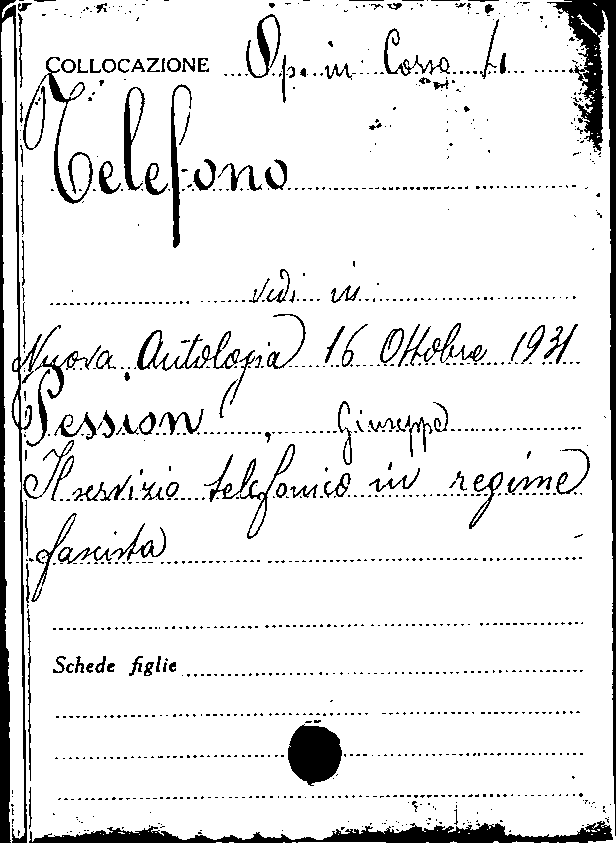 COLLOCAZIONE Op. in Corso 41
Telefono
vedi in
Nuova Antologia 16 Ottobre 1931
Pession, Giuseppe
Il servizio telefonico in regime
fascista
Schede figlie